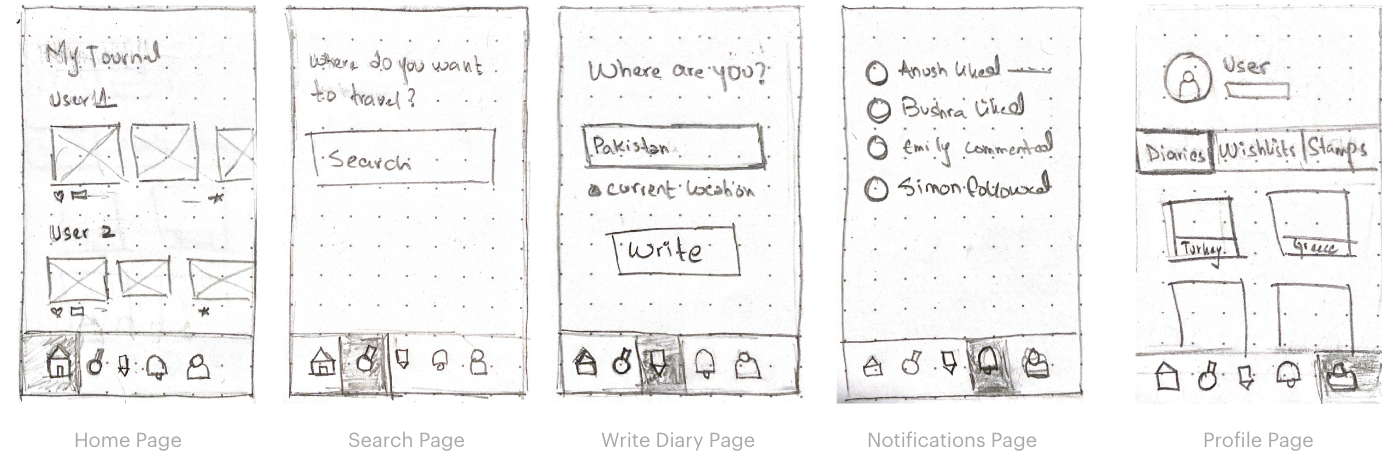 My Journal
User 1
User 2
Home Page
where do you want
to travel?
Search
Search Page
Where are you?
Pakistan
current location
Write
Write Diary Page
Anush liked
Bushra liked
Emily commented
Simon followed
Notifications Page
User
Diaries Wishlists Stamps
Turkey Greece
Profile Page